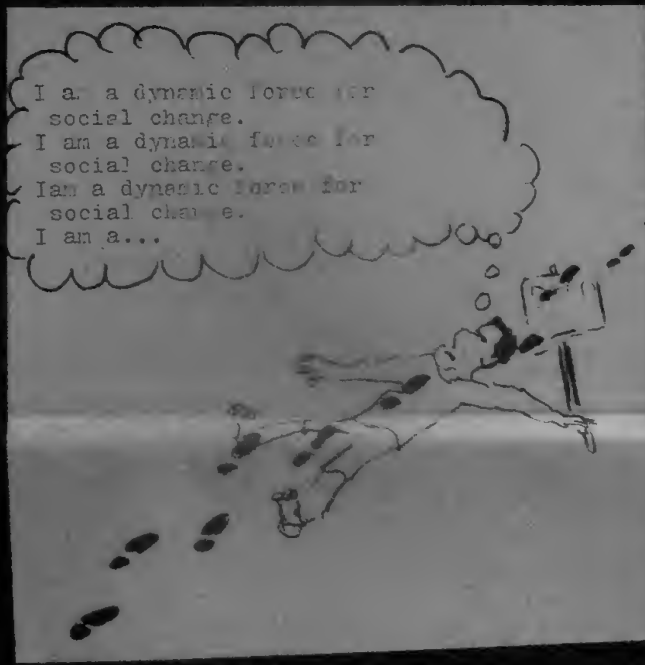 I am a dynamic force for
social change.
I am a dynamic force for
social change.
Iam a dynamic force for
social change.
I am a...